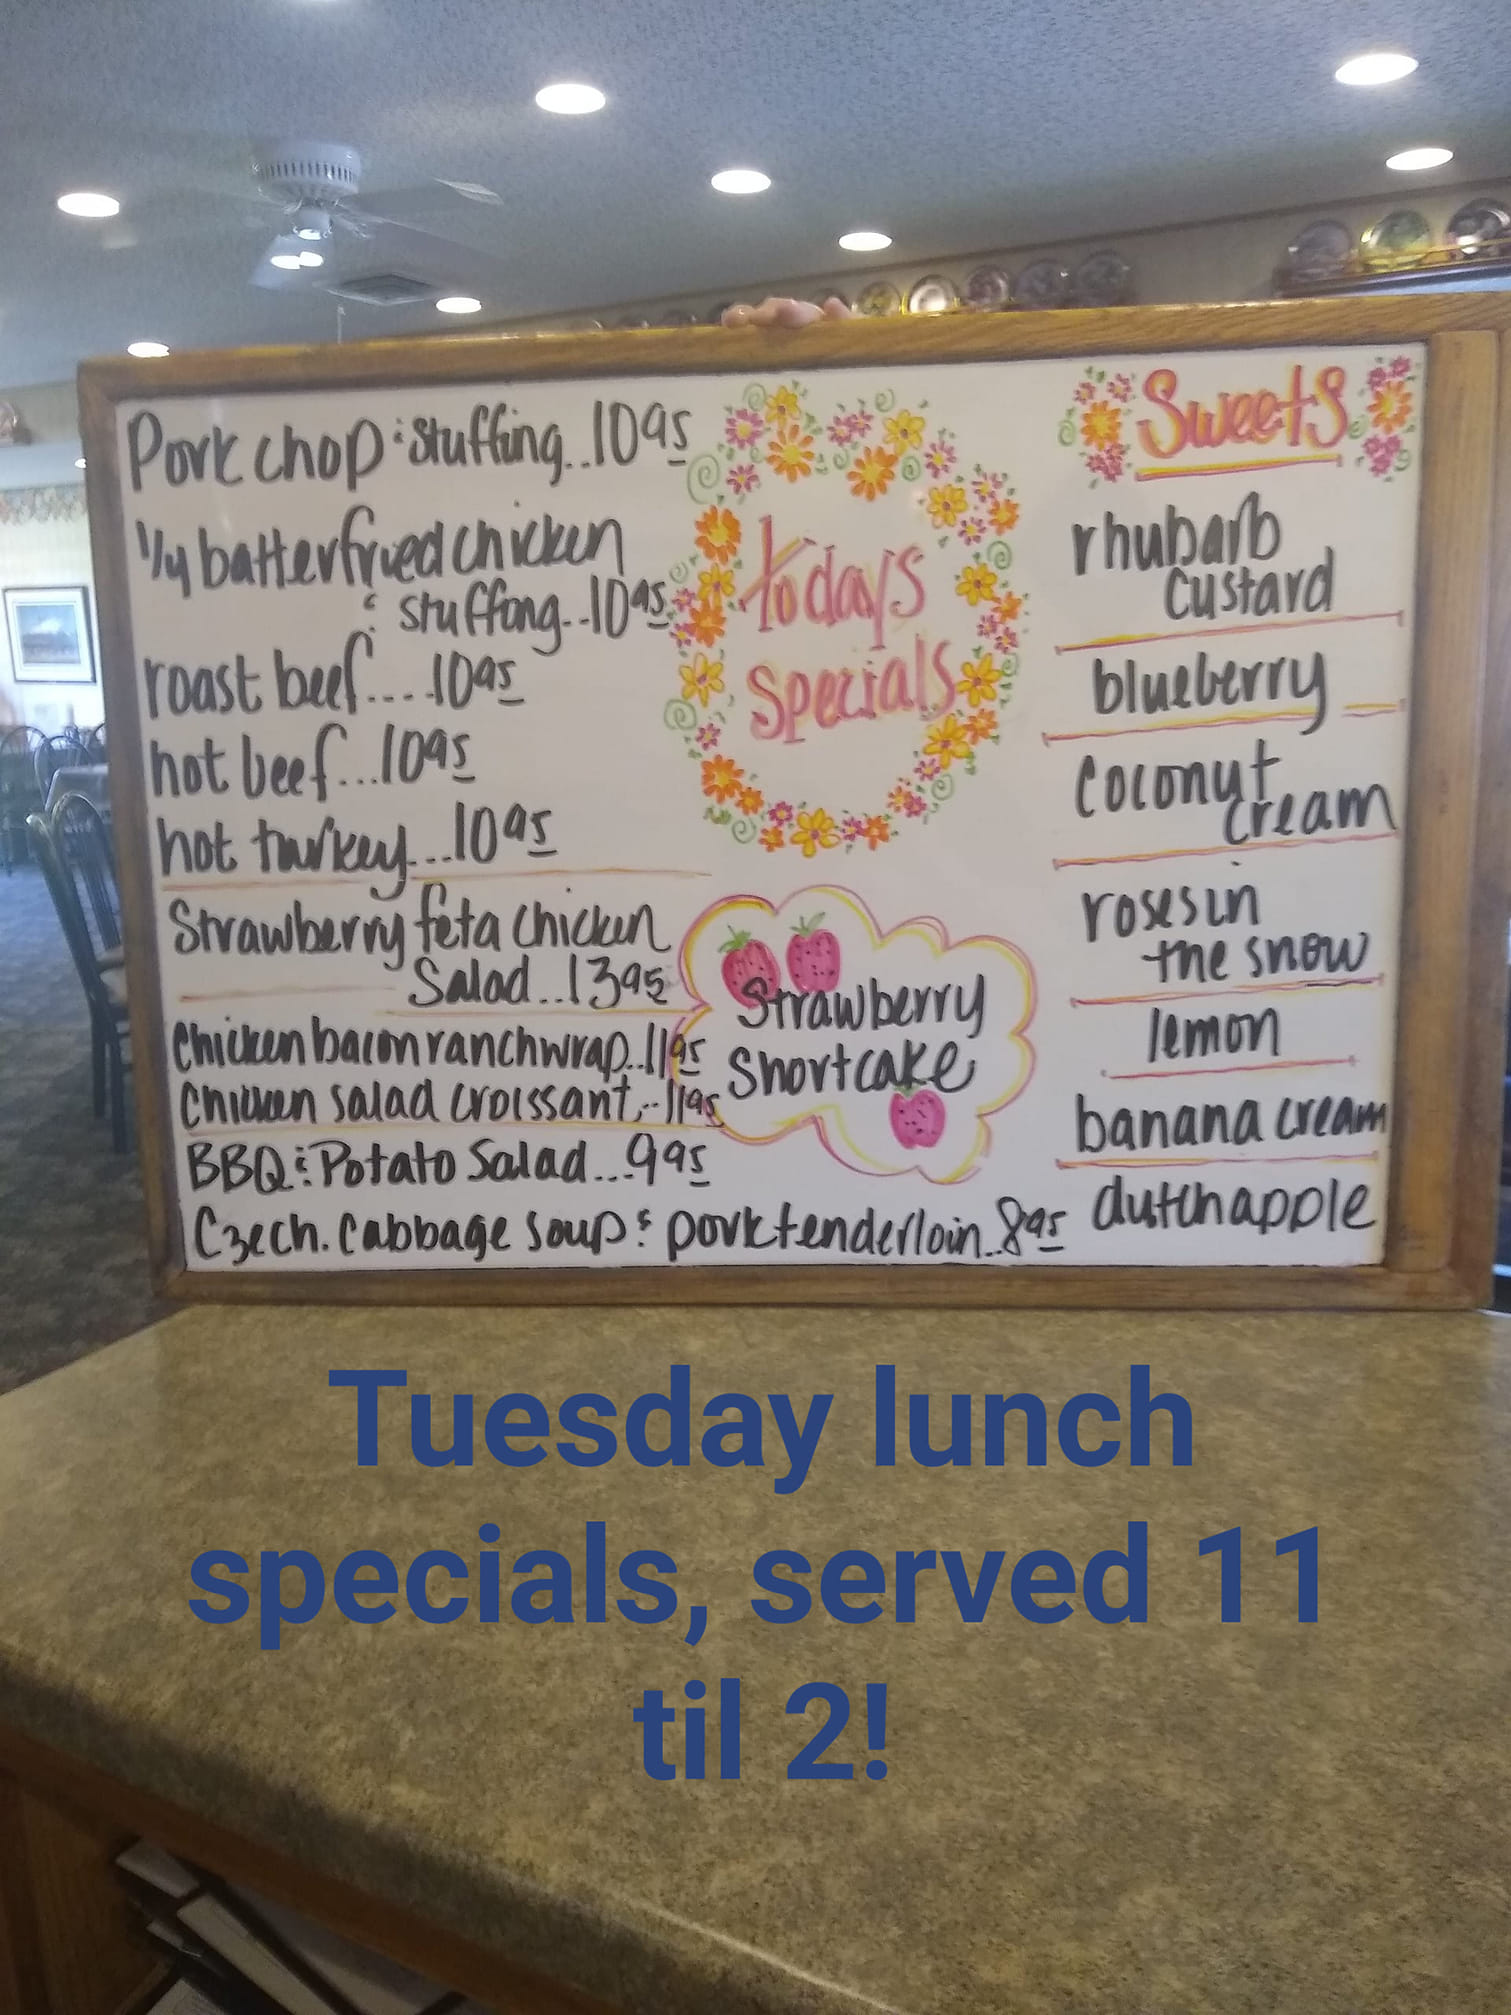 Pork chop & stuffing..10 95
1/4 batterfried chicken
& stuffong..10 95
roast beef....10 95
hot beef...10 95
hot turkey...10 95
Strawberry feta chicken
Salad..13 95
Chicken bacon ranch wrap..11 95
Chicken salad croissant...11 95
BBQ & Potato Salad...9 95
Czech. Cabbage soup & pork tenderloin..8 95
todays
specials
Strawberry
Shortcake
Sweets
rhubarb
custard
blueberry
coconut
cream
roses in
the snow
lemon
banana cream
dutch apple
Tuesday lunch
specials, served 11
til 2!